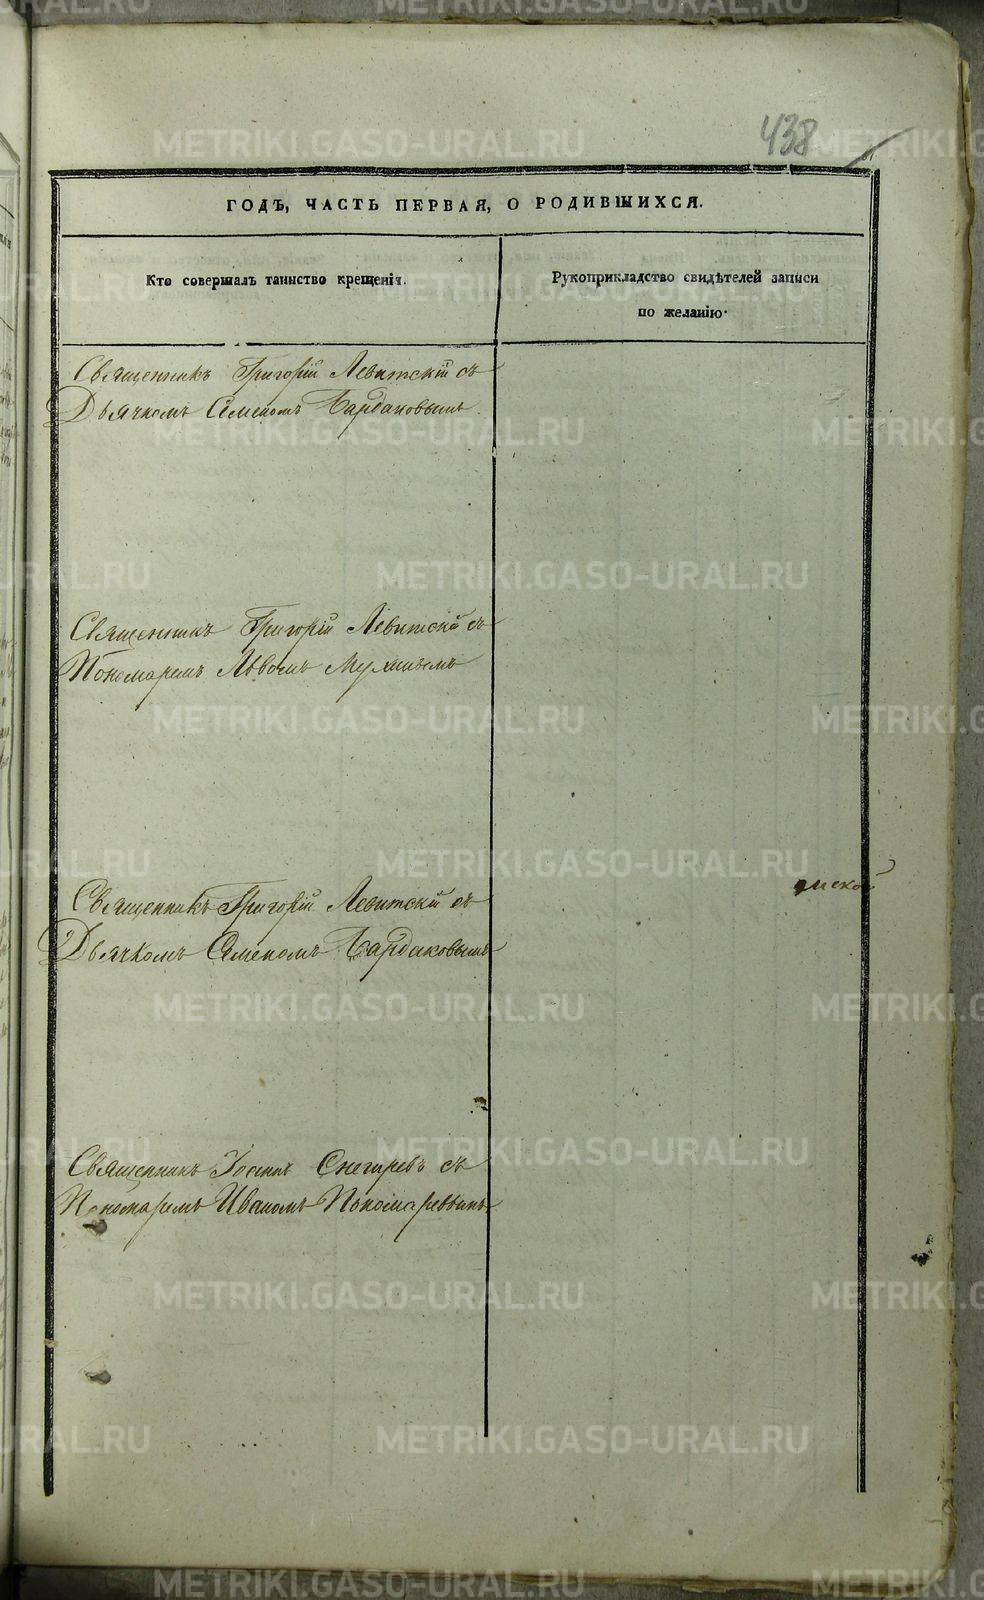 438
ГОДЪ, ЧАСТЬ ПЕРВАЯ, О РОДИВШИХСЯ.
Кто совершалъ таинство крещенія.
Рукоприкладство свидѣтелей записи
по желанію.
Священникъ Григорій Левитскій съ
Дьячкомъ Сименомъ Бардаковымъ.
Священникъ Григорій Левитскій съ
Пономаремъ Львомъ Мухинымъ
Священникъ Григорій Левитскій съ
Дьячкомъ Сименомъ Бардаковымъ
Священникъ Іоаннъ Снегиревъ съ
Пономаремъ Иваномъ Пономаревымъ
METRIKI.GASO-URAL.RU